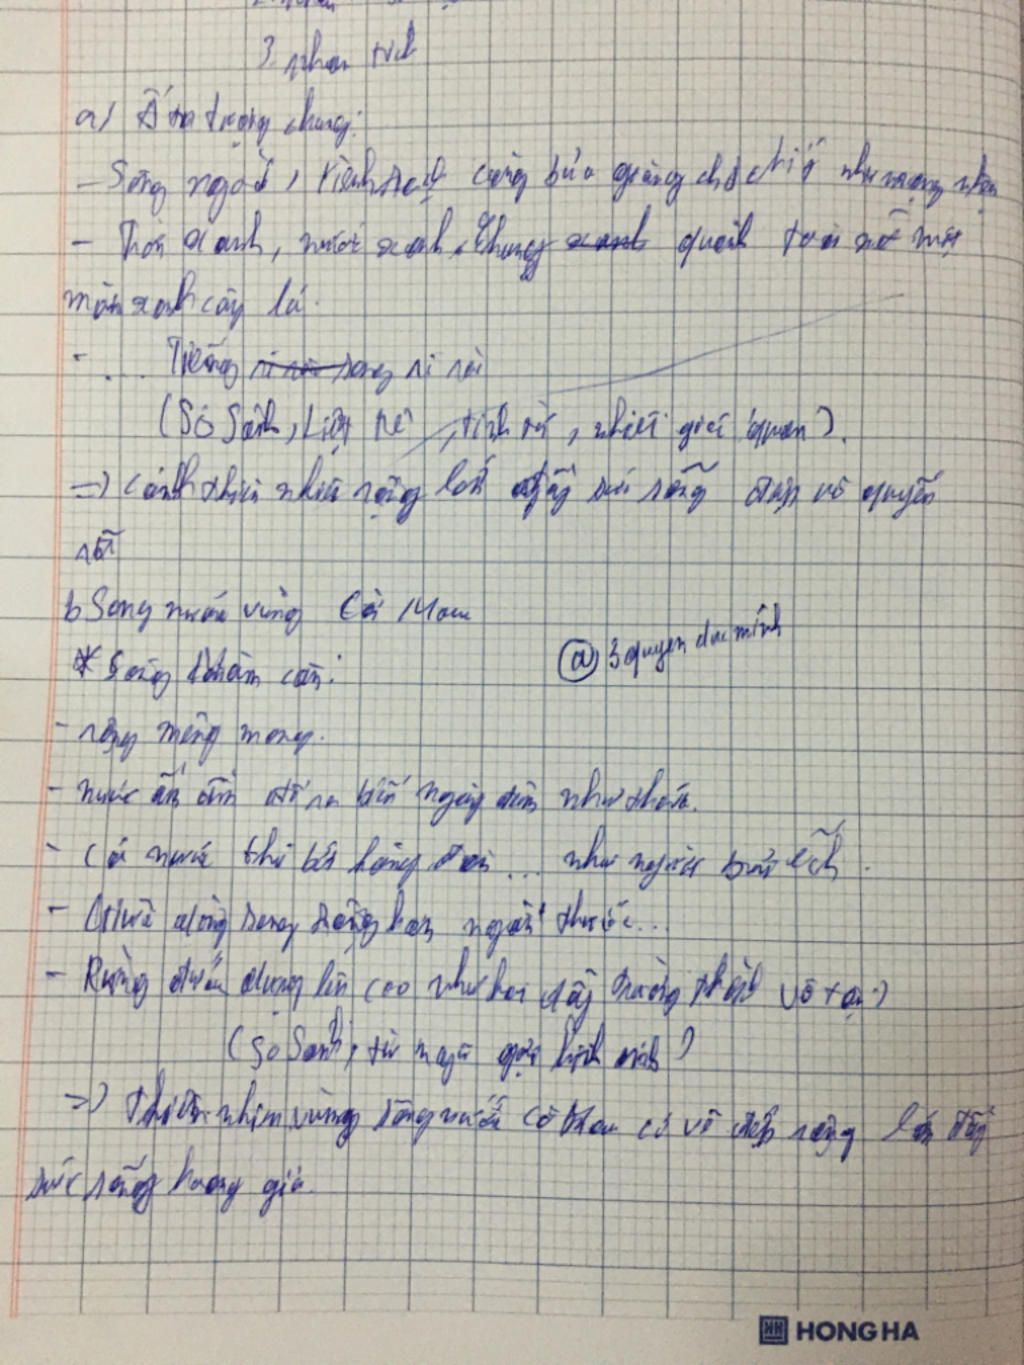 3 phân tích
a) Ấn tượng chung:
- Sông ngòi, kênh rạch càng bủa giăng chi chít như mạng nhện
- Trời xanh, nước xanh, chung quanh toàn một
màu xanh cây lá.
- ... Tiếng sóng rì rào
(So Sánh, Liệt kê, tính từ, giác quan).
=> Cảnh thiên nhiên rộng lớn đầy sức sống đẹp và quyến
rũ
b Sông nước vùng Cà Mau
* Sông Năm căn:
- rộng mênh mông.
- nước ầm ầm đổ ra biển ngày đêm như thác.
- Cá nước bơi hàng đàn ... như người bơi ếch.
- dòng sông rộng hơn ngàn thước...
- Rừng đước dựng lên cao như hai dãy trường thành vô tận
(So Sánh, từ ngữ gợi hình ảnh)
=> thiên nhiên vùng sông nước Cà Mau có vẻ đẹp rộng lớn đầy
sức sống hoang dã.
@ 3 quyen duc minh
HONG HA